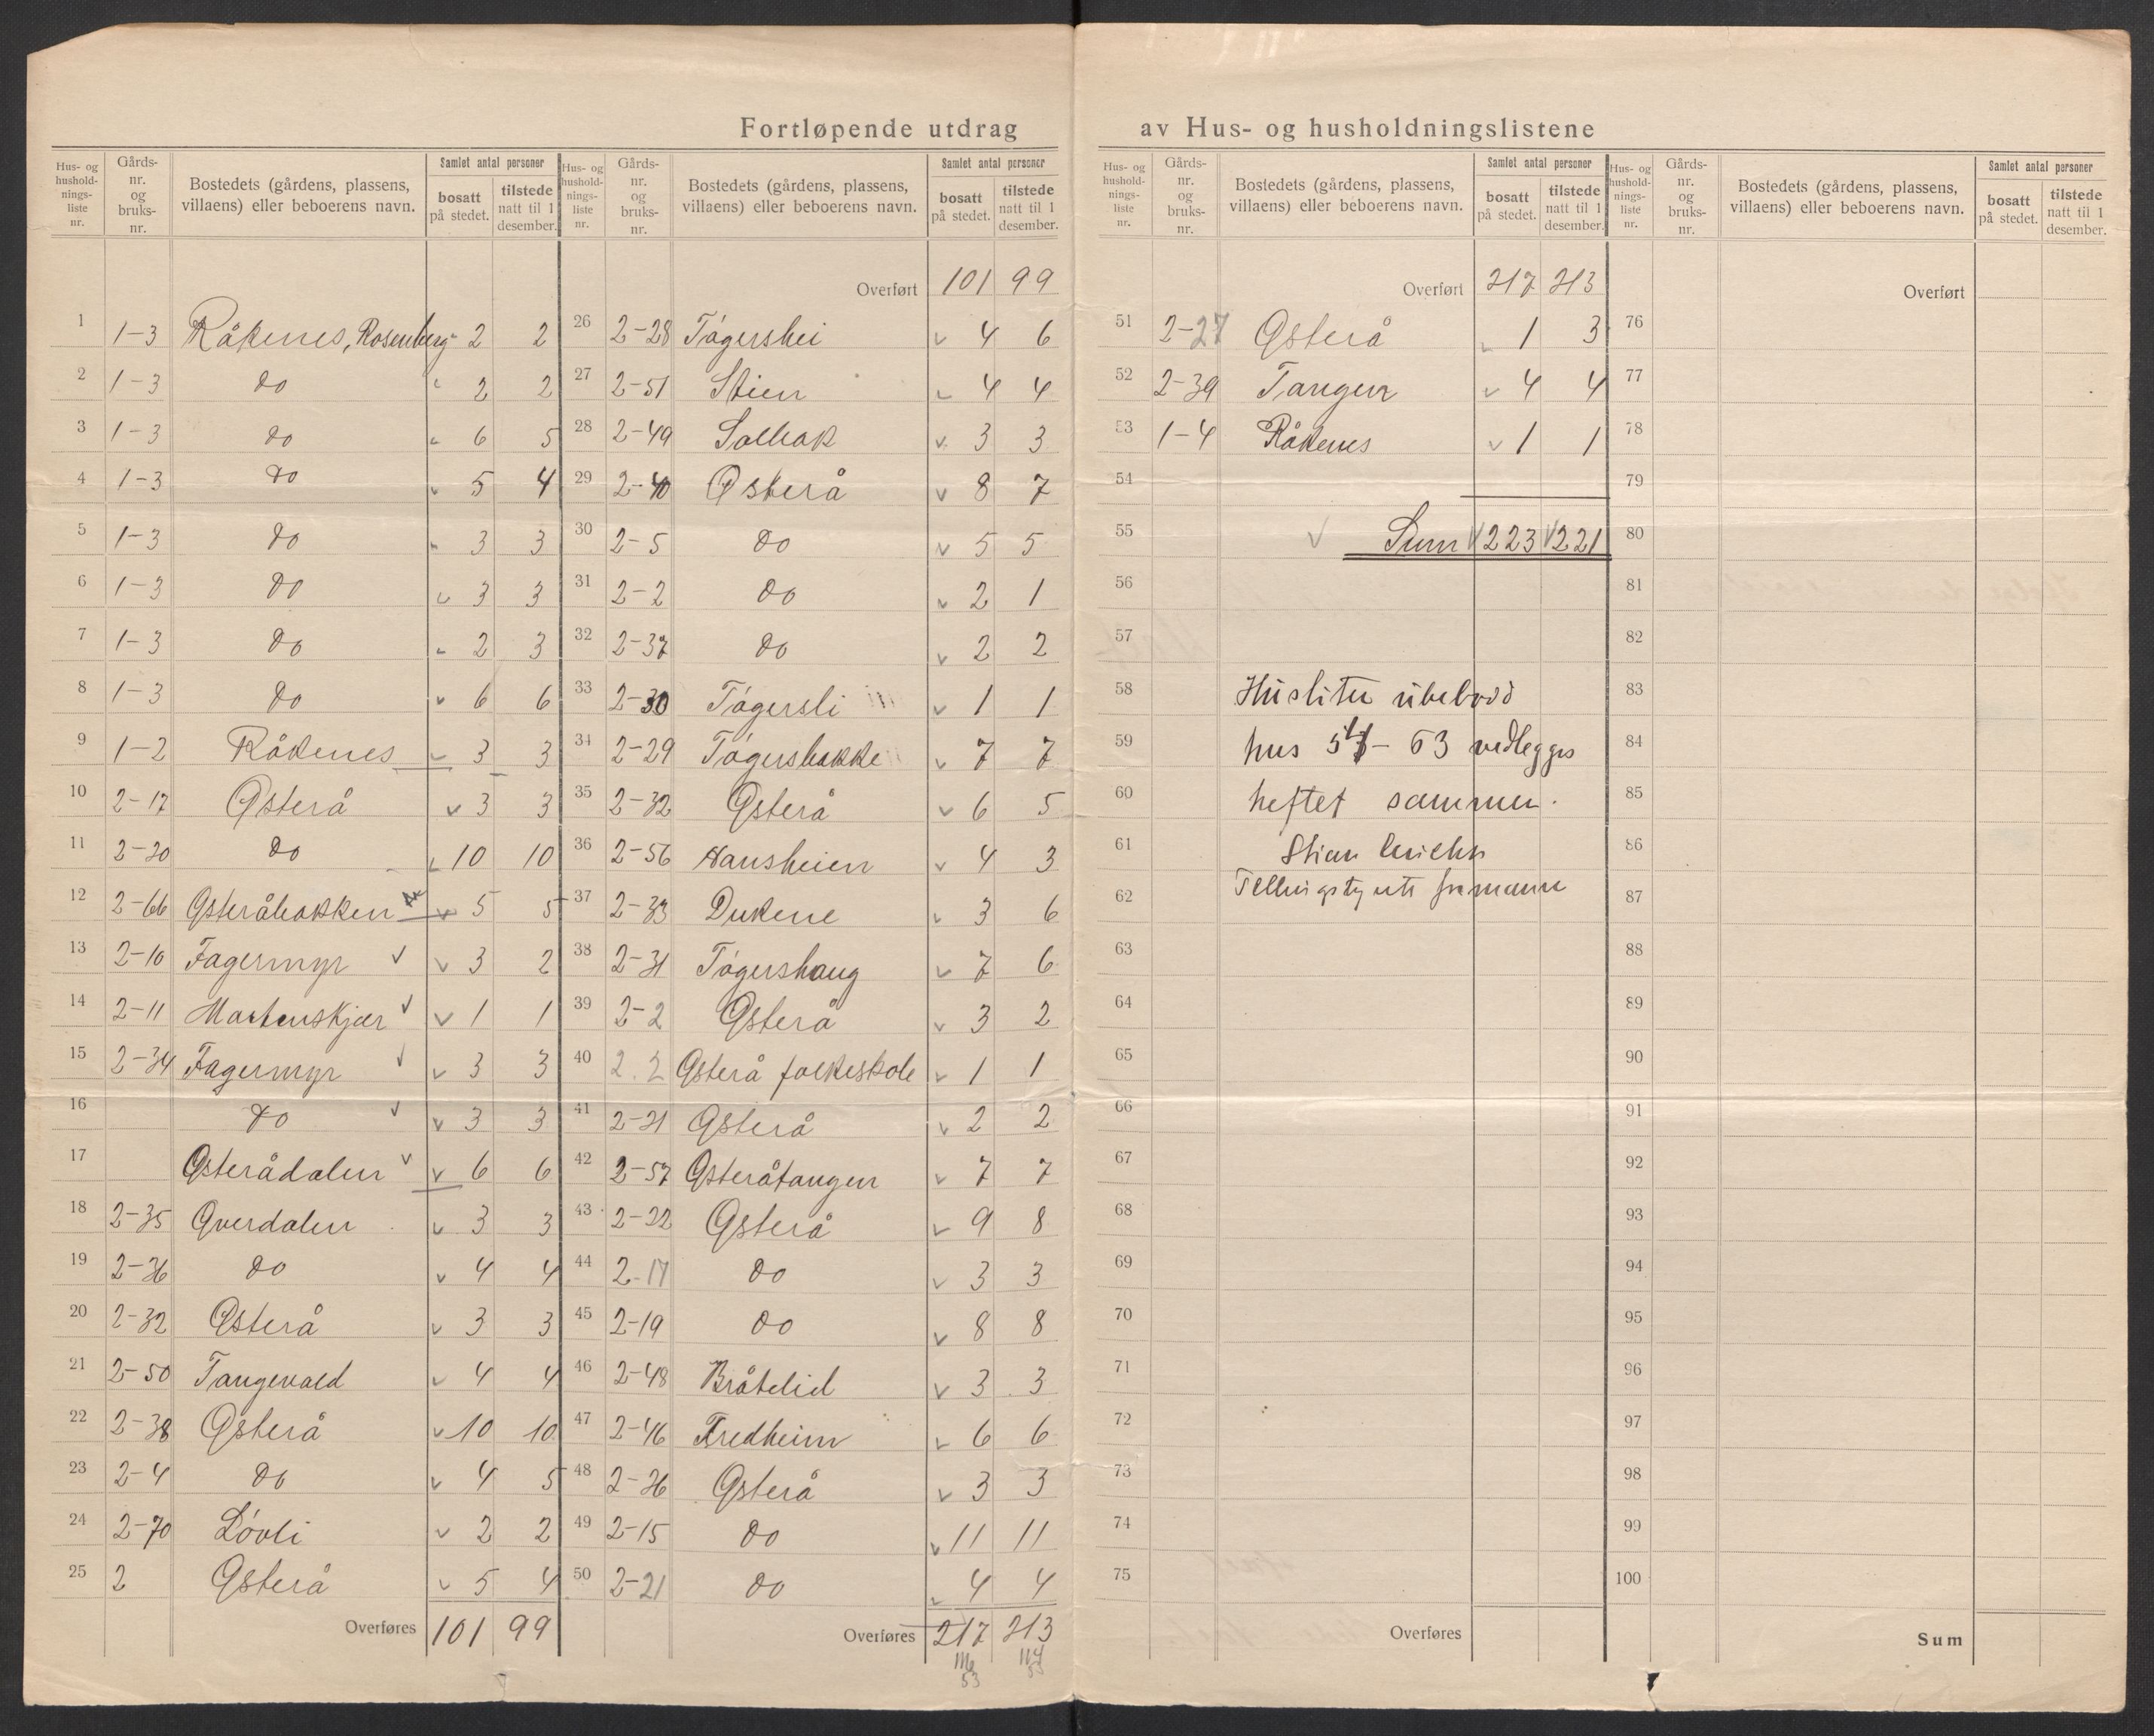 Fortløpende utdrag av Hus- og husholdningslistene
Hus- og hushold-nings-liste nr. | Gårds-nr. og bruks-nr. | Bostedets (gårdens, plassens, villaens) eller beboerens navn. | Samlet antal personer bosatt på stedet. | tilstede natt til 1 desember.
1 1-3 Råkenes, Rosenberg 2 2
2 1-3 do 2 2
3 1-3 do 6 5
4 1-3 do 5 4
5 1-3 do 3 3
6 1-3 do 3 3
7 1-3 do 2 3
8 1-3 do 6 6
9 1-2 Råkenes 3 3
10 2-17 Østerå 3 3
11 2-20 do 10 10
12 2-66 Østeråbakken 5 5
13 2-10 Fagermyr 3 2
14 2-11 Mortenskjær 1 1
15 2-34 Fagermyr 3 3
16 do 3 3
17 Østerådalen 6 6
18 2-35 Øverdalen 3 3
19 2-36 do 4 4
20 2-32 Østerå 3 3
21 2-50 Tangevald 4 4
22 2-38 Østerå 10 10
23 2-4 do 4 5
24 2-70 Løvli 2 2
25 2 Østerå 5 4
Overføres 101 99
Hus- og hushold-nings-liste nr. | Gårds-nr. og bruks-nr. | Bostedets (gårdens, plassens, villaens) eller beboerens navn. | Samlet antal personer bosatt på stedet. | tilstede natt til 1 desember.
Overført 101 99
26 2-28 Tågershei 4 6
27 2-51 Stien 4 4
28 2-49 Solbak 3 3
29 2-40 Østerå 8 7
30 2-5 do 5 5
31 2-2 do 2 1
32 2-37 do 2 2
33 2-30 Tågersli 1 1
34 2-29 Tågersbakke 7 7
35 2-32 Østerå 6 5
36 2-56 Hansheien 4 3
37 2-33 Dukene 3 6
38 2-31 Tågershaug 7 6
39 2-2 Østerå 3 2
40 2.2 Østerå folkeskole 1 1
41 2-21 Østerå 2 2
42 2-57 Østeråtangen 7 7
43 2-22 Østerå 9 8
44 2-17 do 3 3
45 2-19 do 8 8
46 2-48 Bråtelid 3 3
47 2-46 Fredheim 6 6
48 2-26 Østerå 3 3
49 2-15 do 11 11
50 2-21 do 4 4
Overføres 217 213
116 114
53 53
Hus- og hushold-nings-liste nr. | Gårds-nr. og bruks-nr. | Bostedets (gårdens, plassens, villaens) eller beboerens navn. | Samlet antal personer bosatt på stedet. | tilstede natt til 1 desember.
Overført 217 213
51 2-27 Østerå 1 3
52 2-39 Tangen 4 4
53 1-4 Råkenes 1 1
54
55 Sum 223 221
56
57
58 Huslister ubebodd
59 hus 54 - 63 vedlegges
60 heftet sammen.
61 Stian
62 formann
63
64
65
66
67
68
69
70
71
72
73
74
75
Overføres
Hus- og hushold-nings-liste nr. | Gårds-nr. og bruks-nr. | Bostedets (gårdens, plassens, villaens) eller beboerens navn. | Samlet antal personer bosatt på stedet. | tilstede natt til 1 desember.
Overført
76
77
78
79
80
81
82
83
84
85
86
87
88
89
90
91
92
93
94
95
96
97
98
99
100
Sum